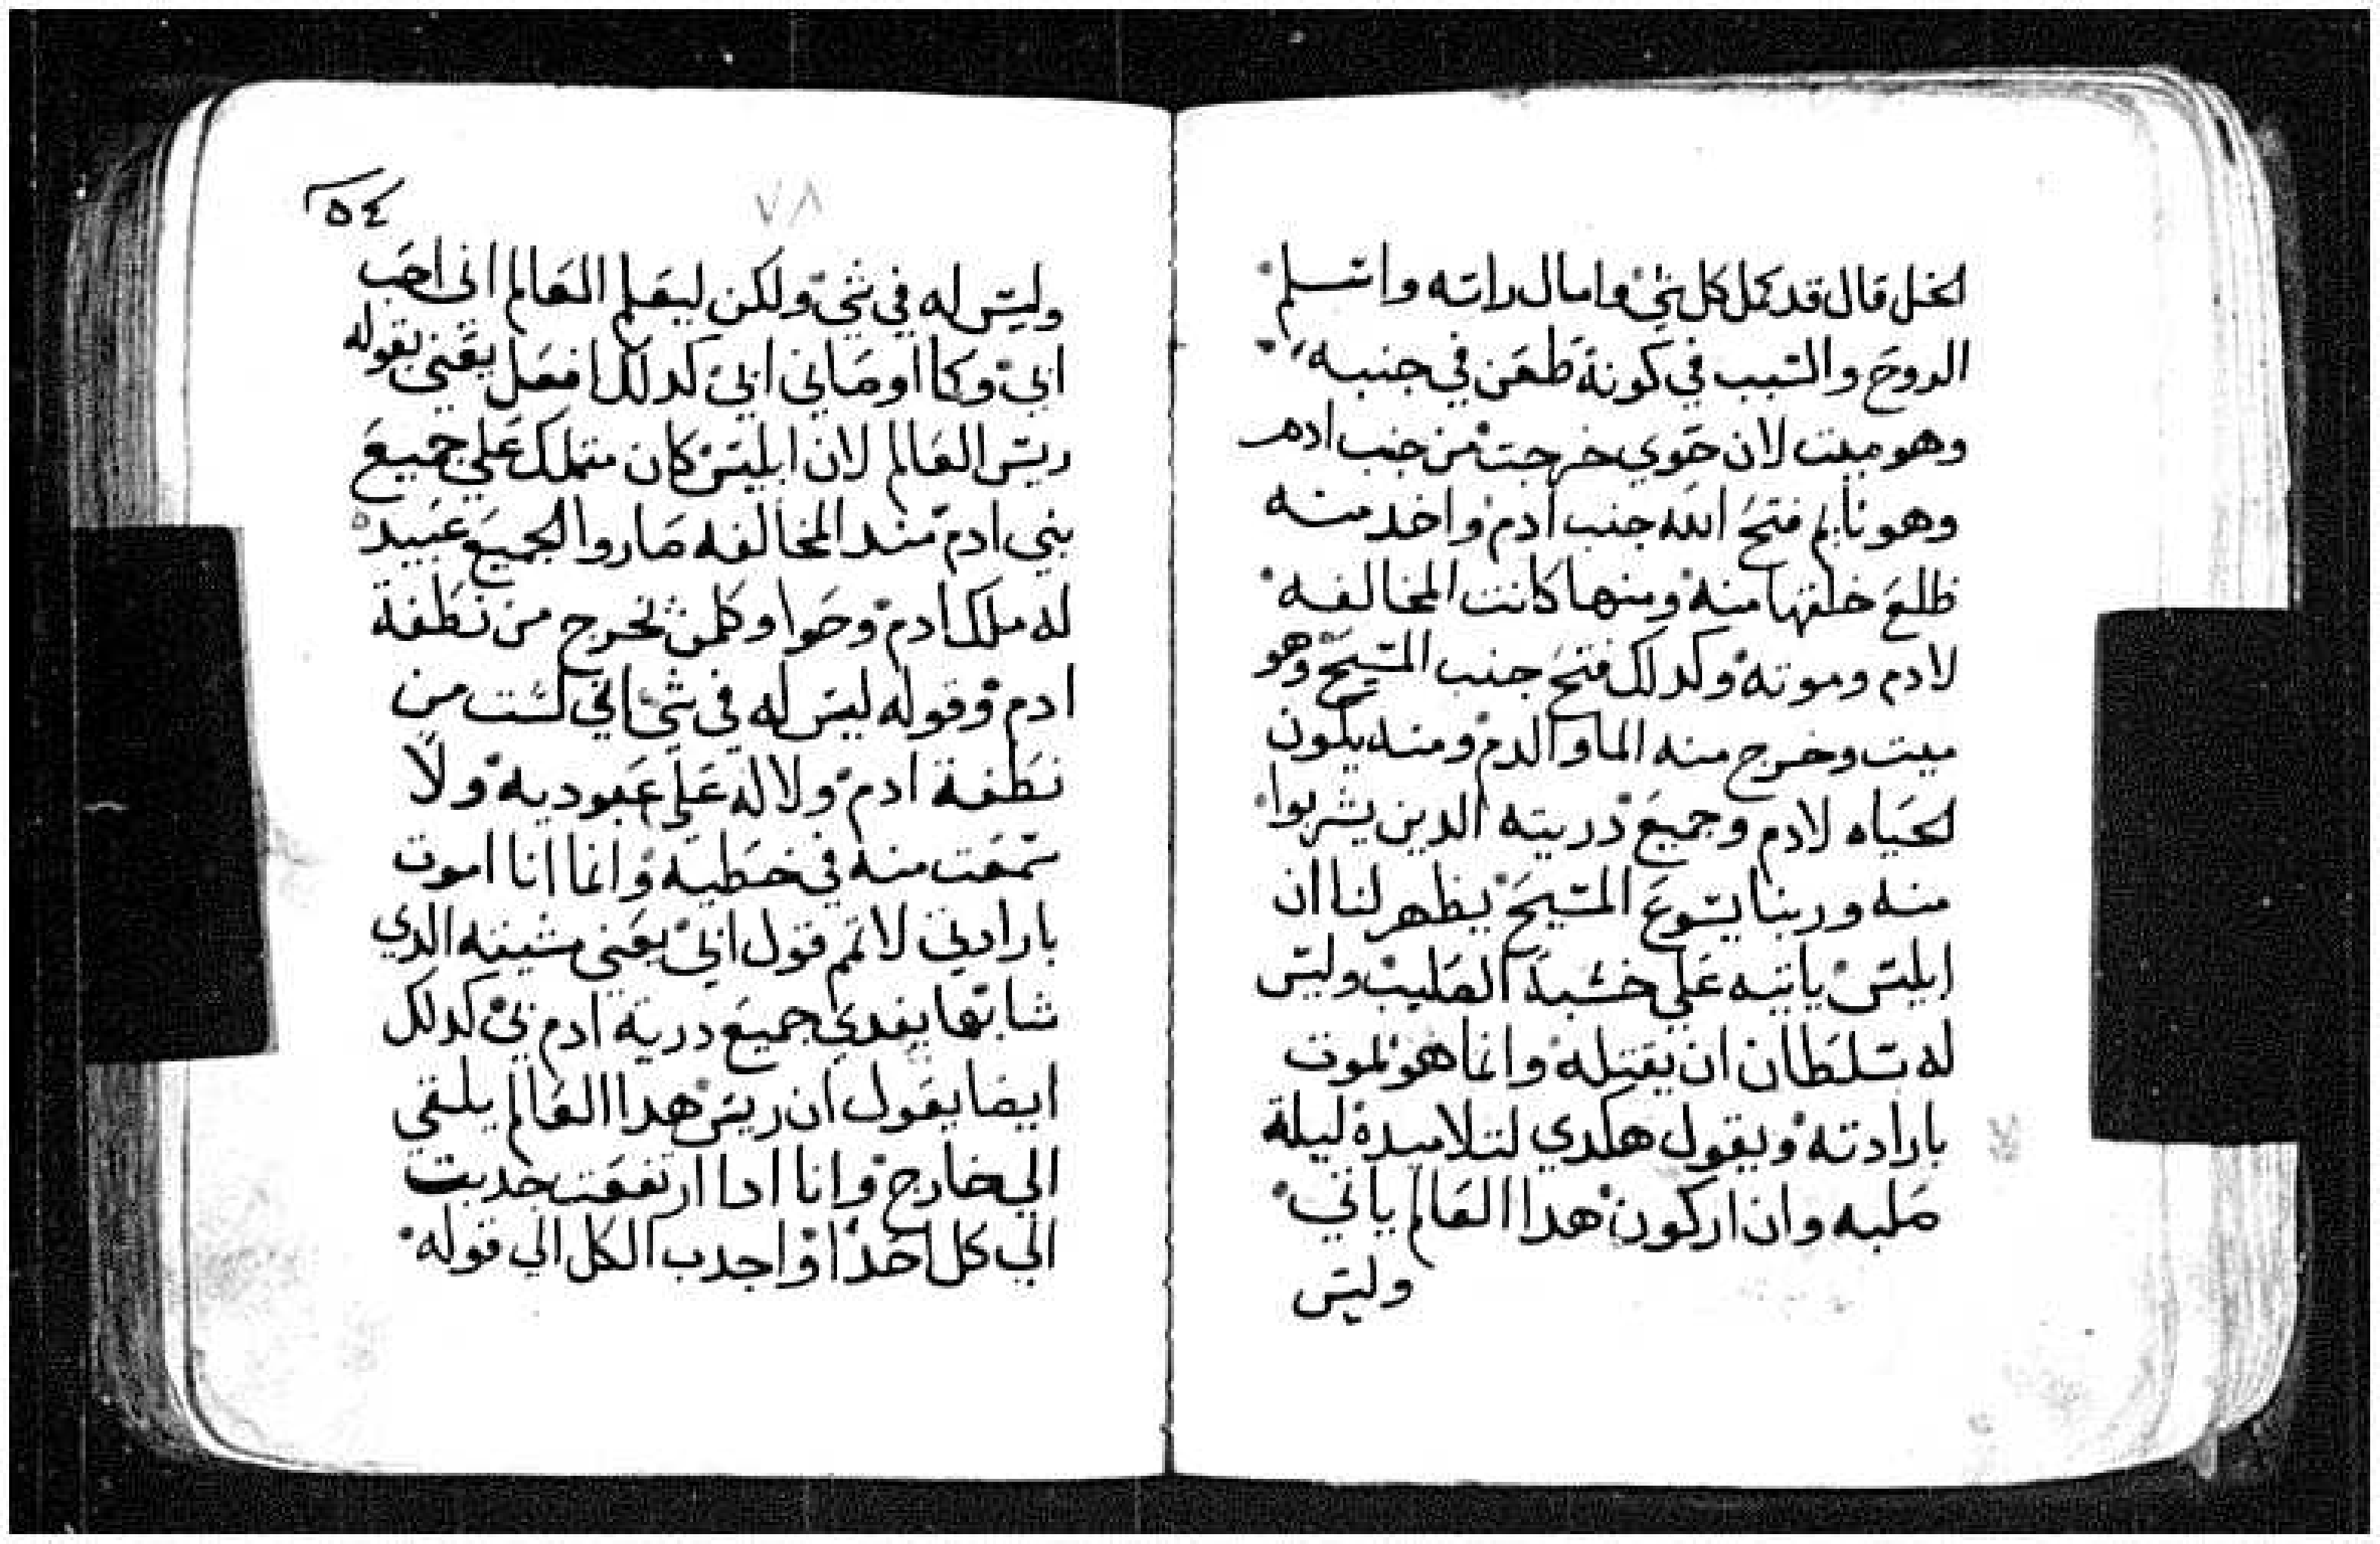 الخل قال قد كمل كل شي وامال راسه واسلم
الروح والسبب في كونة طعن في جنبه
وهو ميت لان حوي خرجت من جنب ادم
وهو نايم فتح الله جنب ادم واخد منه
ظلع خلقها منه ومنها كانت المخالفه
لادم وموته وكدلك فتح جنب المسيح وهو
ميت وخرج منه الما والدم ومنه يكون
الحياه لادم وجميع دريته الدين يشربوا
منه وربنا يسوع المسيح يظهر لنا ان
ابليس ياتيه علي خشبة الصليب وليس
له سلطان ان يقتله وانما هو يموت
بارادته ويقول هكدي لتلاميده ليلة
صلبه وان اركون هدا العالم ياتي
وليس
٥٤
٧٨
وليس له في شي ولكن ليعلم العالم اني احب
ابي وكما اوصاني ابي كدلك افعل يعني بقوله
ريس العالم لان ابليس كان متملك علي جميع
بني ادم مند المخالفه صاروا الجميع عبيد
له ملك ادم وحوا وكلمن خرج من نطفة
ادم وقوله ليس له في شي اني لست من
نطفة ادم ولا له علي عبوديه ولا
سمعت منه في خطيه وانما انا اموت
بارادتي لاتم قول ابي يعني مشيته الدي
شا بها يفدي جميع درية ادم بي كدلك
ايضا يقول ان ريس هدا العالم يلقي
الي خارج وانا ادا ارتفعت جدبت
الي كل احدا واجدب الكل الي قوله